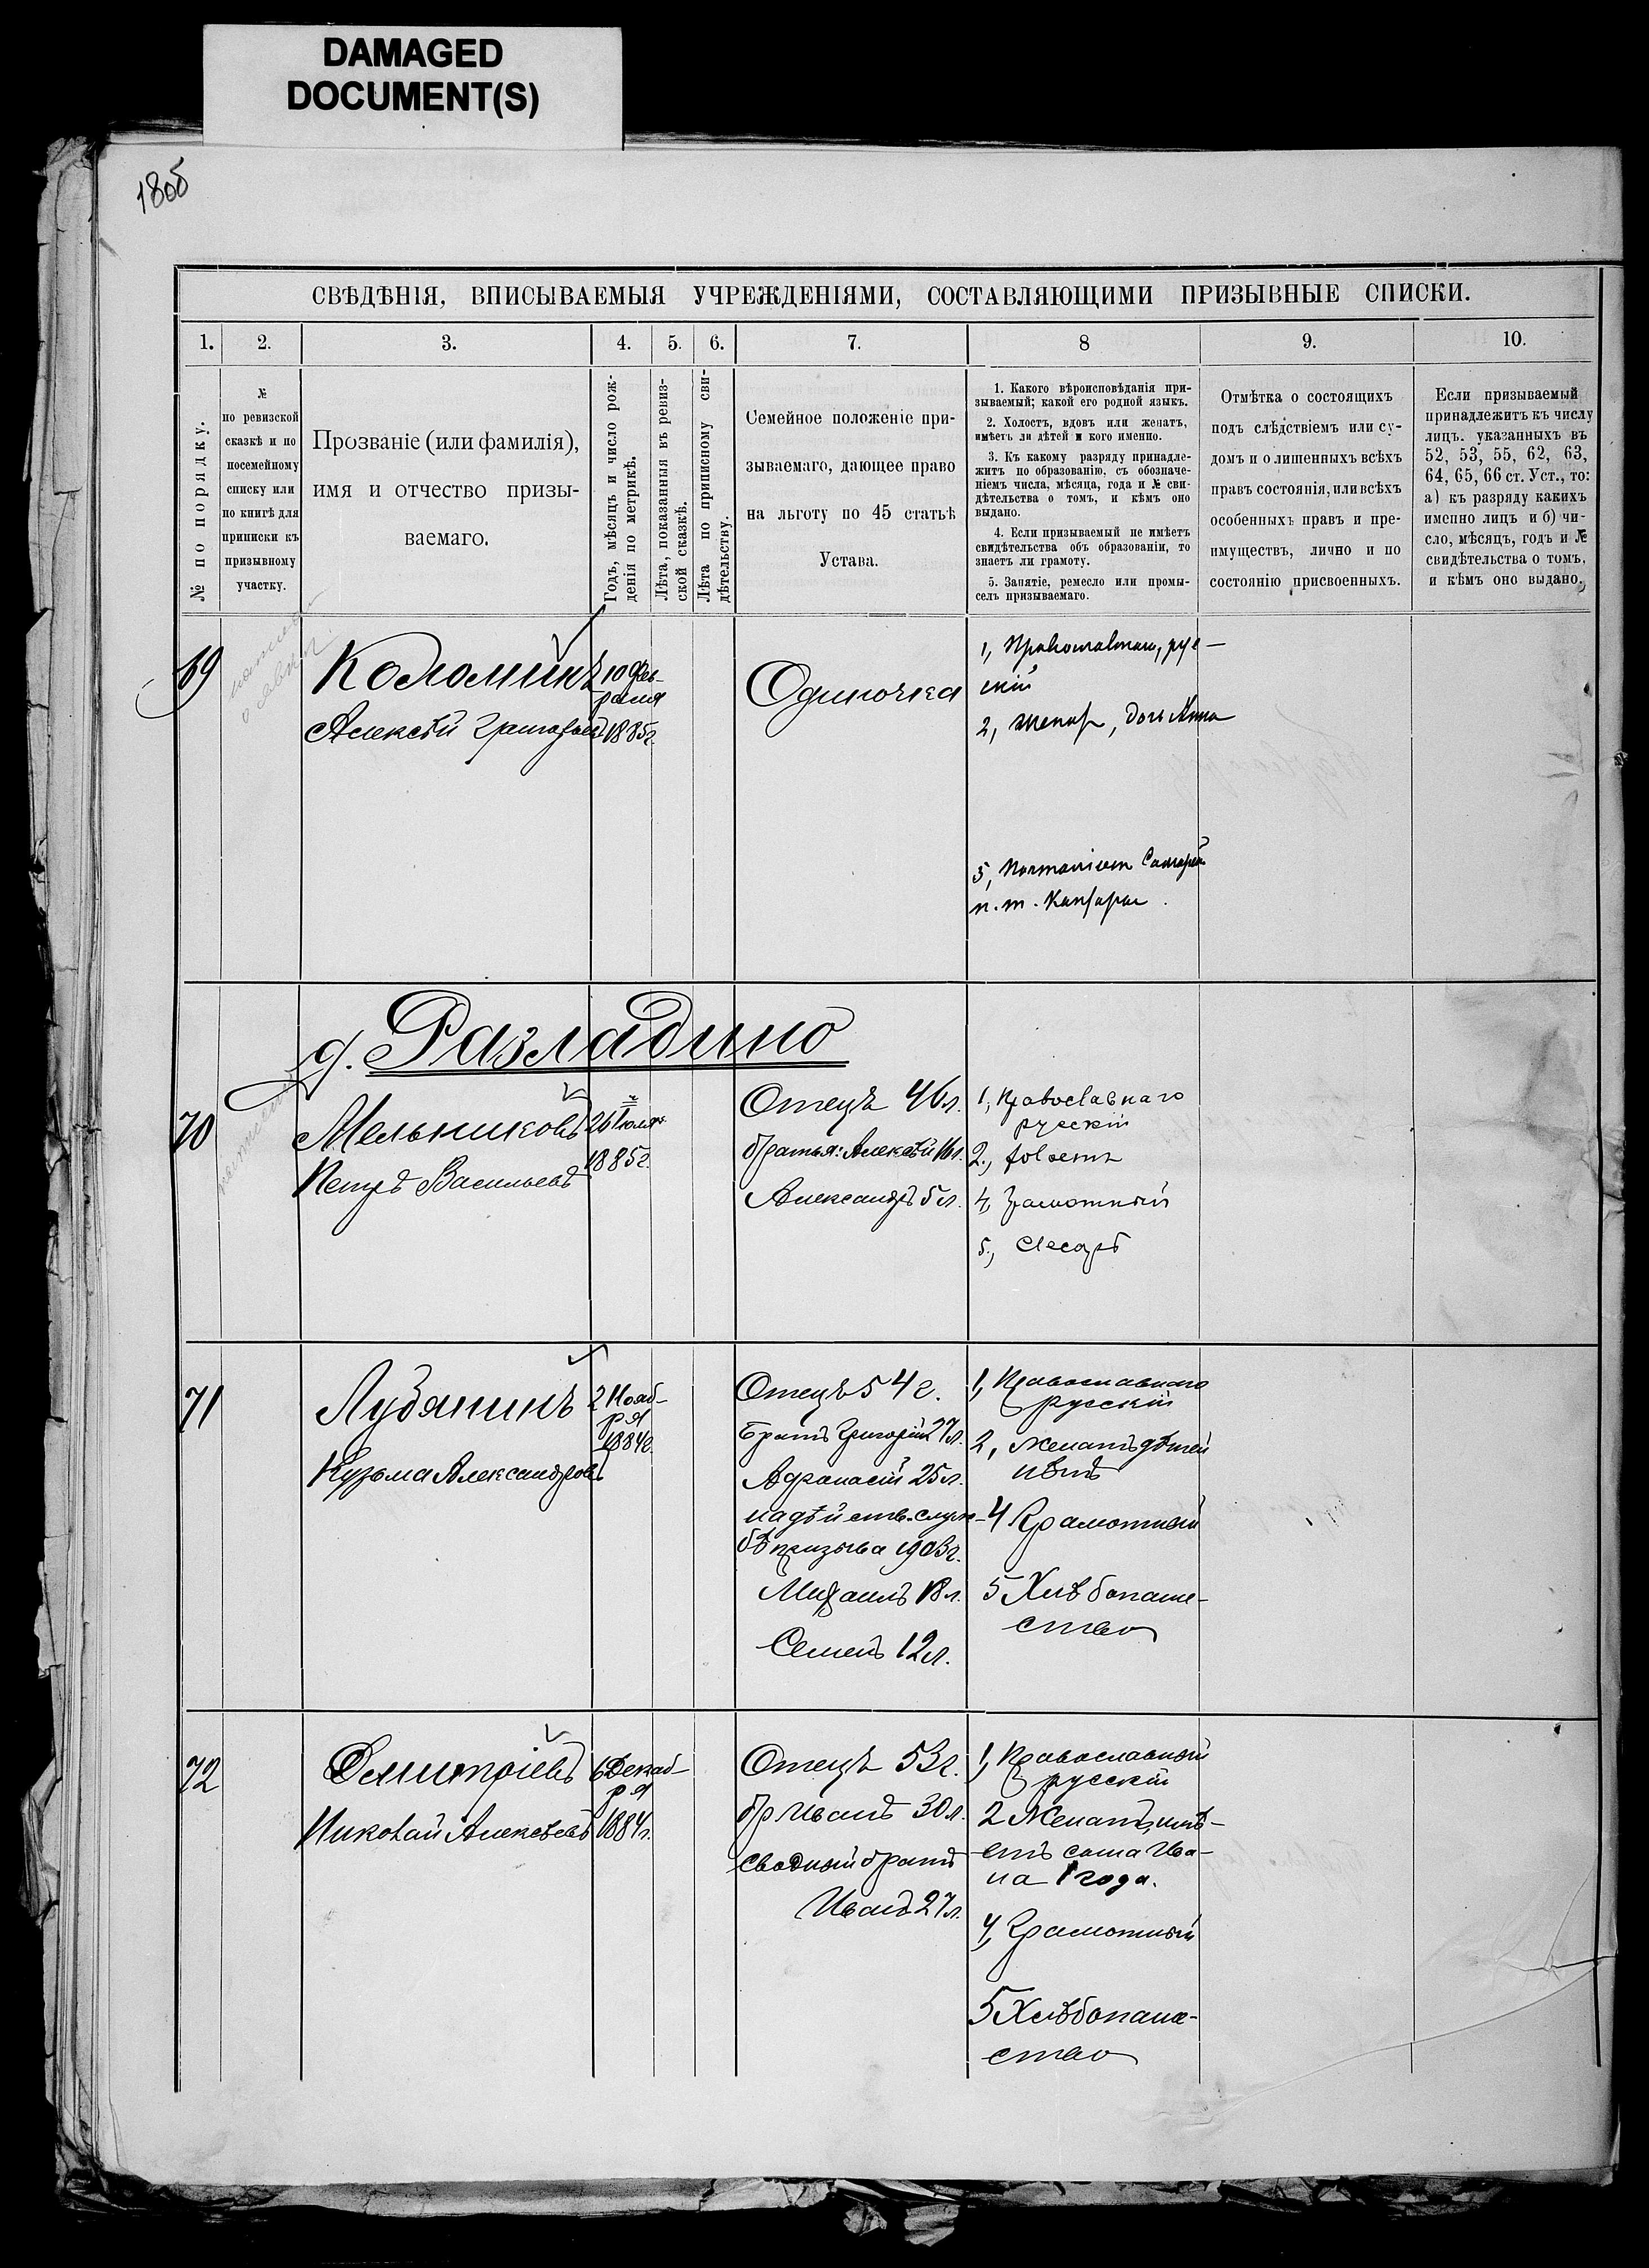 DAMAGED
DOCUMENT(S)
180б
СВѢДѢНІЯ, ВПИСЫВАЕМЫЯ УЧРЕЖДЕНІЯМИ, СОСТАВЛЯЮЩИМИ ПРИЗЫВНЫЕ СПИСКИ.
1. 2. 3. 4. 5. 6. 7. 8 9. 10.
№ по порядку.
№
по ревизской
сказкѣ и по
посемейному
списку или
по книгѣ для
приписки къ
призывному
участку.
Прозваніе (или фамилія),
имя и отчество призы-
ваемаго.
Годъ, мѣсяцъ и число рож-
денія по метрикѣ.
Лѣта, показанныя въ ревиз-
ской сказкѣ.
Лѣта по приписному сви-
дѣтельству.
Семейное положеніе при-
зываемаго, дающее право
на льготу по 45 статьѣ
Устава.
1. Какого вѣроисповѣданія при-
зываемый; какой его родной языкъ.
2. Холостъ, вдовъ или женатъ,
имѣетъ ли дѣтей и кого именно.
3. Къ какому разряду принадле-
житъ по образованію, съ обозначе-
ніемъ числа, мѣсяца, года и № сви-
дѣтельства о томъ, и кѣмъ оно
выдано.
4. Если призываемый не имѣетъ
свидѣтельства объ образованіи, то
знаетъ ли грамоту.
5. Занятіе, ремесло или промы-
селъ призываемаго.
Отмѣтка о состоящихъ
подъ слѣдствіемъ или су-
домъ и о лишенныхъ всѣхъ
правъ состоянія, или всѣхъ
особенныхъ правъ и пре-
имуществъ, лично и по
состоянію присвоенныхъ.
Если призываемый
принадлежитъ къ числу
лицъ. указанныхъ въ
52, 53, 55, 62, 63,
64, 65, 66 ст. Уст., то:
а) къ разряду какихъ
именно лицъ и б) чи-
сло, мѣсяцъ, годъ и №
свидѣтельства о томъ,
и кѣмъ оно выдано.
69
Коломийцъ
Алексѣй Григорьевъ
10 Фев-
раля
1885г.
Одиночка
1, Православнаго, рус-
скій
2, женат, дочь Анна
5,
п. т.
д. Разладино
70
Мельниковъ
Петръ Васильевъ
26 Іюля
1885г.
Отецъ 46 л.
братья: Алексѣй 16л.
Александръ 5 л.
1, Православнаго
русскій
2.,
4, Грамотный
5., Слесарь
71
Лубянинъ
Кузьма Александровъ
2 Нояб-
ря
1884г.
Отецъ 54 г.
Братъ Григорій 27л.
Афанасій 25 л.
на дѣйств. служ-
бѣ призыва 1903г.
Михаилъ 18 л.
Семенъ 12 л.
1, Православнаго
русскій
2, Женатъ дѣтей
нѣтъ
4 Грамотный
5 Хлѣбопаше-
ство
72
Дмитріевъ
Николай Алексѣевъ
6 Декаб-
ря
1884г.
Отецъ 53г.
бр Иванъ 30 л.
Сводный братъ
Иванъ 27 л.
1, Православный
русскій
2 Женатъ, имѣ-
етъ сына Ива-
на 1 года.
4, Грамотный
5 Хлѣбопаше-
ство